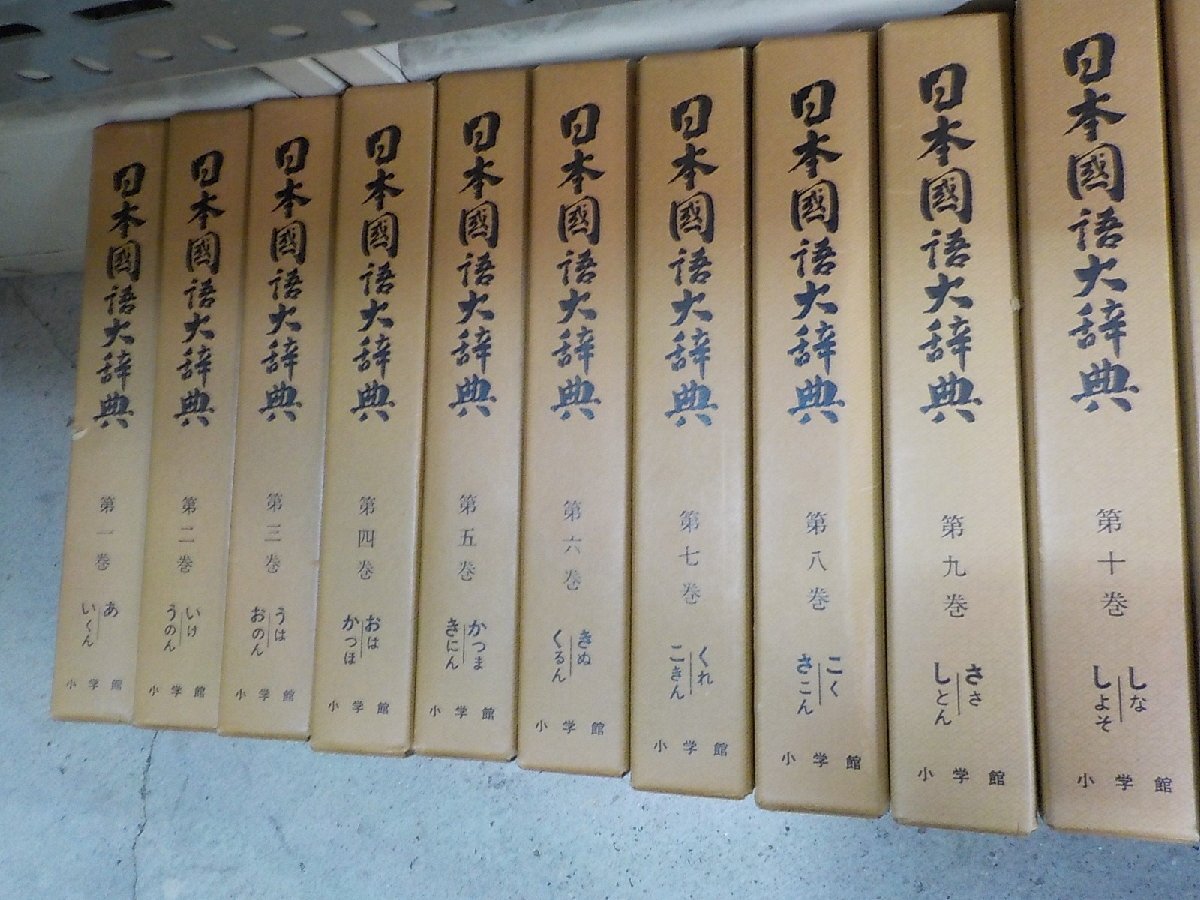 日本國語大辞典
第一巻
あ
いくん
小学館
日本國語大辞典
第二巻
いけ
うのん
小学館
日本國語大辞典
第三巻
うは
おのん
小学館
日本國語大辞典
第四巻
おは
かつほ
小学館
日本國語大辞典
第五巻
かつま
きにん
小学館
日本國語大辞典
第六巻
きぬ
くるん
小学館
日本國語大辞典
第七巻
くれ
こきん
小学館
日本國語大辞典
第八巻
こく
さこん
小学館
日本國語大辞典
第九巻
ささ
しとん
小学館
日本國語大辞典
第十巻
しな
しよそ
小学館